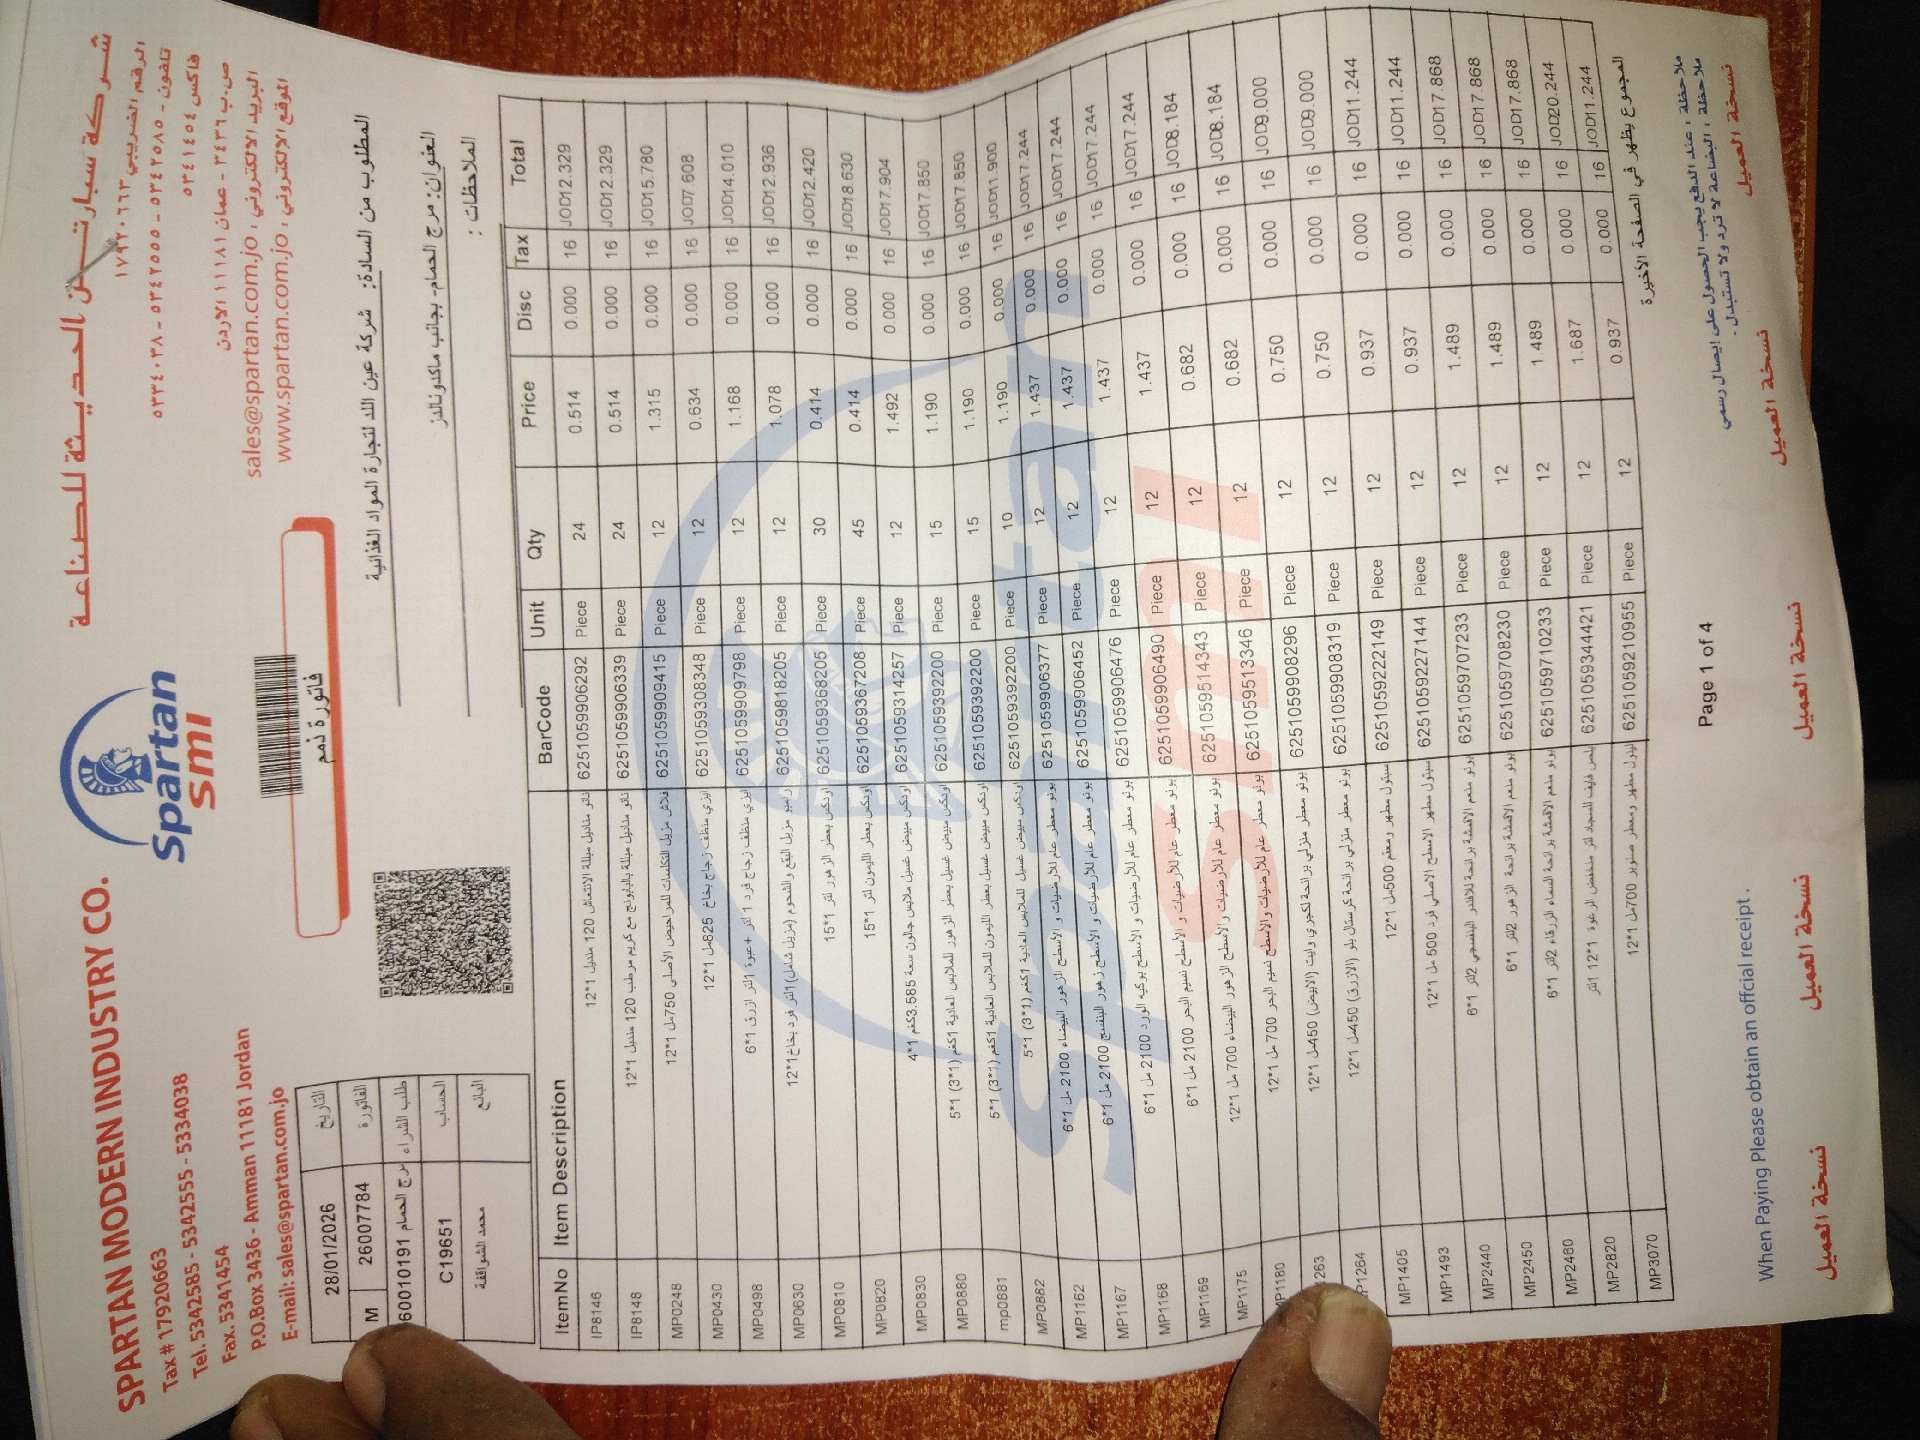 SPARTAN MODERN INDUSTRY CO.
Tax # 17920663
Tel. 5342585 - 5342555 - 5334038
Fax. 5341454
P.O.Box 3436 - Amman 11181 Jordan
E-mail: sales@spartan.com.jo
Spartan
smi
شركة سبارتن الحديثة للصناعة
الرقم الضريبي ١٧٩٢٠٦٦٣
تلفون - ٥٣٤٢٥٨٥ - ٥٣٤٢٥٥٥ - ٥٣٣٤٠٣٨
فاكس ٥٣٤١٤٥٤
ص.ب ٣٤٣٦ - عمان ١١١٨١ الاردن
البريد الالكتروني : sales@spartan.com.jo
الموقع الالكتروني : www.spartan.com.jo
فاتورة ذمم
28/01/2026 التاريخ
M 26007784 الفاتورة
60010191 مرج الحمام طلب الشراء
C19651 الحساب
محمد الشوافقة البائع
المطلوب من السادة: شركة عين اللد لتجارة المواد الغذائية
العنوان: مرج الحمام- بجانب ماكدونالدز
الملاحظات :
ItemNo Item Description BarCode Unit Qty Price Disc Tax Total
IP8146 نانو مناديل مبللة الانتعاش 120 منديل 1*12 6251059906292 Piece 24 0.514 0.000 16 JOD12.329
IP8148 نانو مناديل مبللة بالبابونج مع كريم مرطب 120 منديل 1*12 6251059906339 Piece 24 0.514 0.000 16 JOD12.329
MP0248 فلاش مزيل التكلسات للمراحيض الأصلي 750مل 1*12 6251059909415 Piece 12 1.315 0.000 16 JOD15.780
MP0430 ايزي منظف زجاج بخاخ 825مل 1*12 6251059308348 Piece 12 0.634 0.000 16 JOD7.608
MP0498 ايزي منظف زجاج فرد 1 لتر +عبوة 1لتر ازرق 1*6 6251059909798 Piece 12 1.168 0.000 16 JOD14.010
MP0630 رامبو مزيل البقع والشحوم (مزيل شامل) 1لتر فرد بخاخ 1*12 6251059818205 Piece 12 1.078 0.000 16 JOD12.936
MP0810 اودكس بعطر الزهور لتر 1*15 6251059368205 Piece 30 0.414 0.000 16 JOD12.420
MP0820 اودكس بعطر الليمون لتر 1*15 6251059367208 Piece 45 0.414 0.000 16 JOD18.630
MP0830 اودكس مبيض غسيل ملابس جالون سعة 3.585كغم 1*4 6251059314257 Piece 12 1.492 0.000 16 JOD17.904
MP0880 اودكس مبيض غسيل بعطر الزهور للملابس العادية 1كغم (1*3) 1*5 6251059392200 Piece 15 1.190 0.000 16 JOD17.850
mp0881 اودكس مبيض غسيل بعطر الليمون للملابس العادية 1كغم (1*3) 1*5 6251059392200 Piece 15 1.190 0.000 16 JOD17.850
MP0882 اودكس مبيض غسيل للملابس العادية 1كغم (1*3) 1*5 6251059392200 Piece 10 1.190 0.000 16 JOD11.900
MP1162 بونو معطر عام للارضيات و الأسطح الزهور البيضاء 2100 مل 1*6 6251059906377 Piece 12 1.437 0.000 16 JOD17.244
MP1167 بونو معطر عام للارضيات و الأسطح زهور البنفسج 2100 مل 1*6 6251059906452 Piece 12 1.437 0.000 16 JOD17.244
MP1168 بونو معطر عام للارضيات و الأسطح بوكيه الورد 2100 مل 1*6 6251059906476 Piece 12 1.437 0.000 16 JOD17.244
MP1169 بونو معطر عام للارضيات و الأسطح نسيم البحر 2100 مل 1*6 6251059906490 Piece 12 1.437 0.000 16 JOD17.244
MP1175 بونو معطر عام للارضيات والأسطح الزهور البيضاء 700 مل 1*12 6251059514343 Piece 12 0.682 0.000 16 JOD8.184
MP1180 بونو معطر عام للارضيات والأسطح نسيم البحر 700 مل 1*12 6251059513346 Piece 12 0.682 0.000 16 JOD8.184
1263 بونو معطر منزلي برائحة لكجري وايت (الابيض) 450مل 1*12 6251059908296 Piece 12 0.750 0.000 16 JOD9.000
P1264 بونو معطر منزلي برائحة كرستال بلو (الازرق) 450مل 1*12 6251059908319 Piece 12 0.750 0.000 16 JOD9.000
MP1405 سبتول مطهر ومعقم 500مل 1*12 6251059222149 Piece 12 0.937 0.000 16 JOD11.244
MP1493 سبتول مطهر الاسطح الاصلي فرد 500 مل 1*12 6251059227144 Piece 12 0.937 0.000 16 JOD11.244
MP2440 بونو منعم الاقمشة برائحة اللافندر البنفسجي 2لتر 1*6 6251059707233 Piece 12 1.489 0.000 16 JOD17.868
MP2450 بونو منعم الاقمشة برائحة الزهور 2لتر 1*6 6251059708230 Piece 12 1.489 0.000 16 JOD17.868
MP2480 بونو منعم الاقمشة برائحة السماء الزرقاء 2لتر 1*6 6251059710233 Piece 12 1.489 0.000 16 JOD17.868
MP2820 بلس فايف للسجاد لتر منخفض الرغوة 1*12 1لتر 6251059344421 Piece 12 1.687 0.000 16 JOD20.244
MP3070 لينول مطهر ومعطر صنوبر 700مل 1*12 6251059210955 Piece 12 0.937 0.000 16 JOD11.244
المجموع يظهر في الصفحة الأخيرة
Page 1 of 4
ملاحظة : عند الدفع يجب الحصول على إيصال رسمي
ملاحظة : البضاعة لا ترد ولا تستبدل .
When Paying Please obtain an offcial receipt .
نسخة العميل نسخة العميل نسخة العميل نسخة العميل نسخة العميل